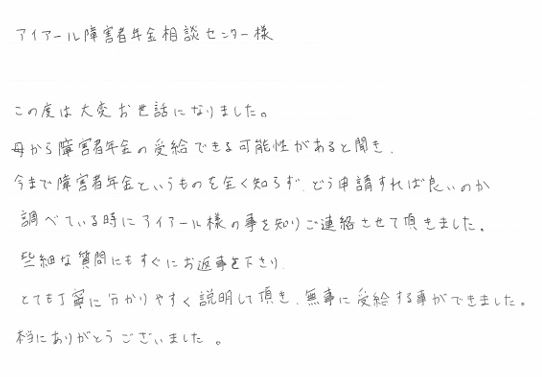 アイアール障害者年金相談センター様
この度は大変お世話になりました。
母から障害者年金の受給できる可能性があると聞き、
今まで障害者年金というものを全く知らず、どう申請すれば良いのか
調べている時にアイアール様の事を知りご連絡させて頂きました。
些細な質問にもすぐにお返事を下さり、
とても丁寧に分かりやすく説明して頂き、無事に受給する事ができました。
本当にありがとうございました。